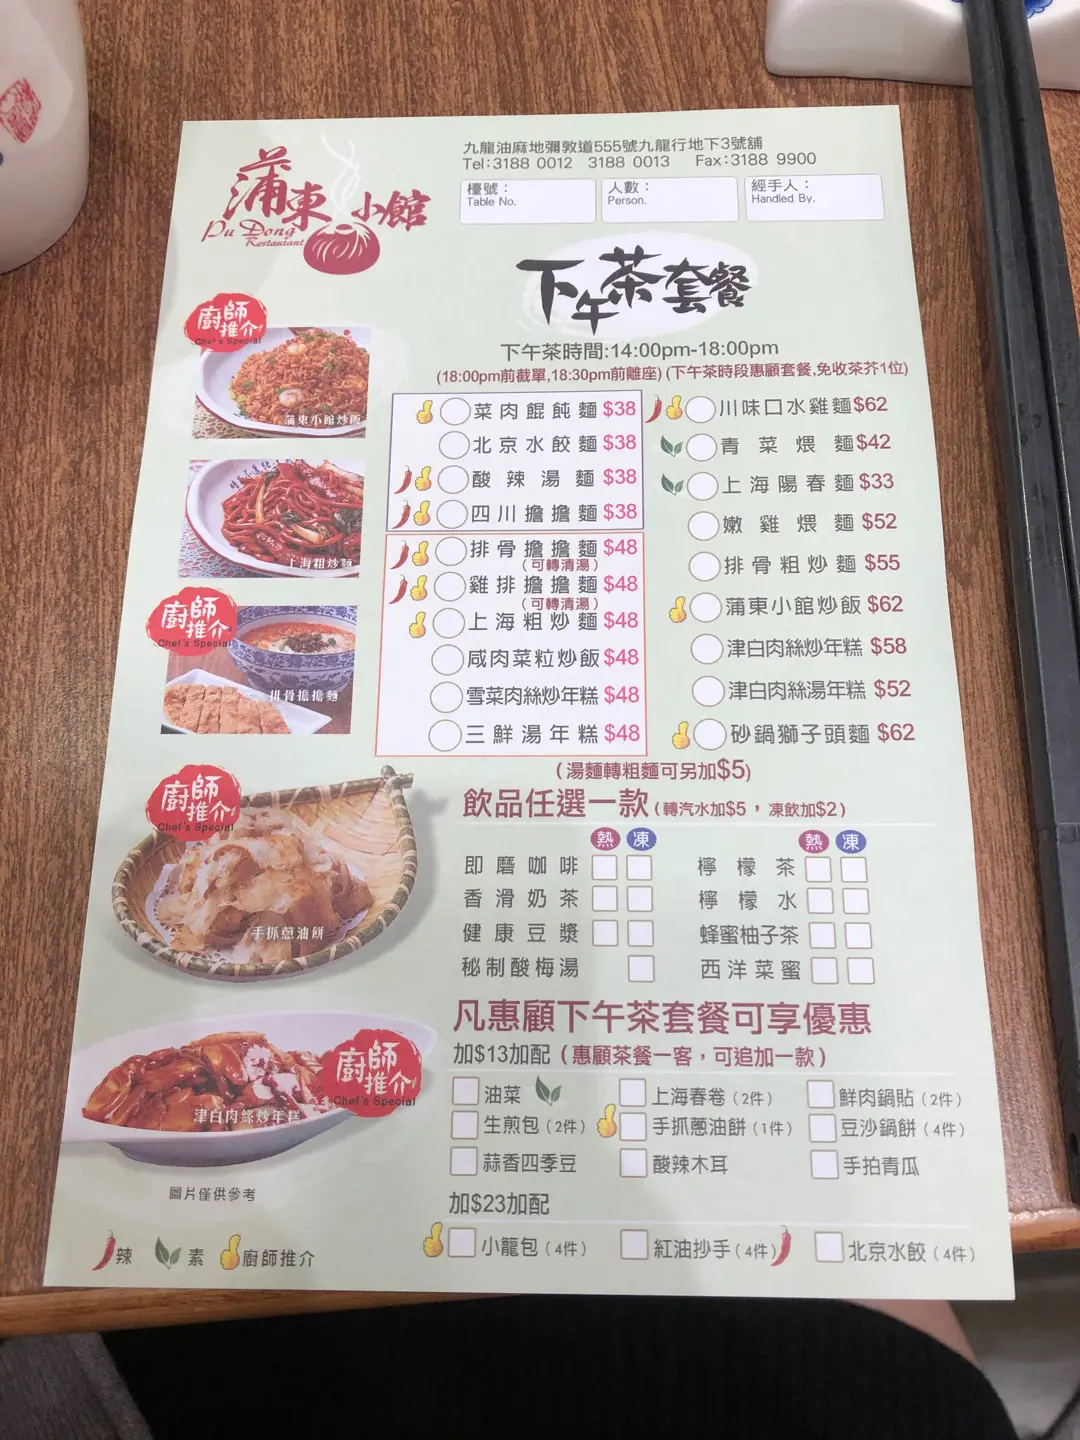 九龍油麻地彌敦道555號九龍行地下3號舖
Tel:3188 0012 3188 0013 Fax:3188 9900
蒲東小館
Pu Dong
Restaurant
檯號：
Table No.
人數：
Person.
經手人：
Handled By.
下午茶套餐
下午茶時間:14:00pm-18:00pm
(18:00pm前截單,18:30pm前離座) (下午茶時段惠顧套餐,免收茶芥1位)
廚師推介
Chef's Special
蒲東小館炒飯
上海粗炒麵
廚師推介
Chef's Special
排骨擔擔麵
廚師推介
Chef's Special
手抓蔥油餅
廚師推介
Chef's Special
津白肉絲炒年糕
圖片僅供參考
辣 素 廚師推介
菜肉餛飩麵 $38
北京水餃麵 $38
酸辣湯麵 $38
四川擔擔麵 $38
排骨擔擔麵 $48
(可轉清湯)
雞排擔擔麵 $48
(可轉清湯)
上海粗炒麵 $48
咸肉菜粒炒飯 $48
雪菜肉絲炒年糕 $48
三鮮湯年糕 $48
川味口水雞麵 $62
青菜煨麵 $42
上海陽春麵 $33
嫩雞煨麵 $52
排骨粗炒麵 $55
蒲東小館炒飯 $62
津白肉絲炒年糕 $58
津白肉絲湯年糕 $52
砂鍋獅子頭麵 $62
(湯麵轉粗麵可另加$5)
飲品任選一款 (轉汽水加$5，凍飲加$2)
熱 凍 熱 凍
即磨咖啡 檸檬茶
香滑奶茶 檸檬水
健康豆漿 蜂蜜柚子茶
秘制酸梅湯 西洋菜蜜
凡惠顧下午茶套餐可享優惠
加$13加配 (惠顧茶餐一客，可追加一款)
油菜 上海春卷 (2件) 鮮肉鍋貼 (2件)
生煎包 (2件) 手抓蔥油餅 (1件) 豆沙鍋餅 (4件)
蒜香四季豆 酸辣木耳 手拍青瓜
加$23加配
小籠包 (4件) 紅油抄手 (4件) 北京水餃 (4件)